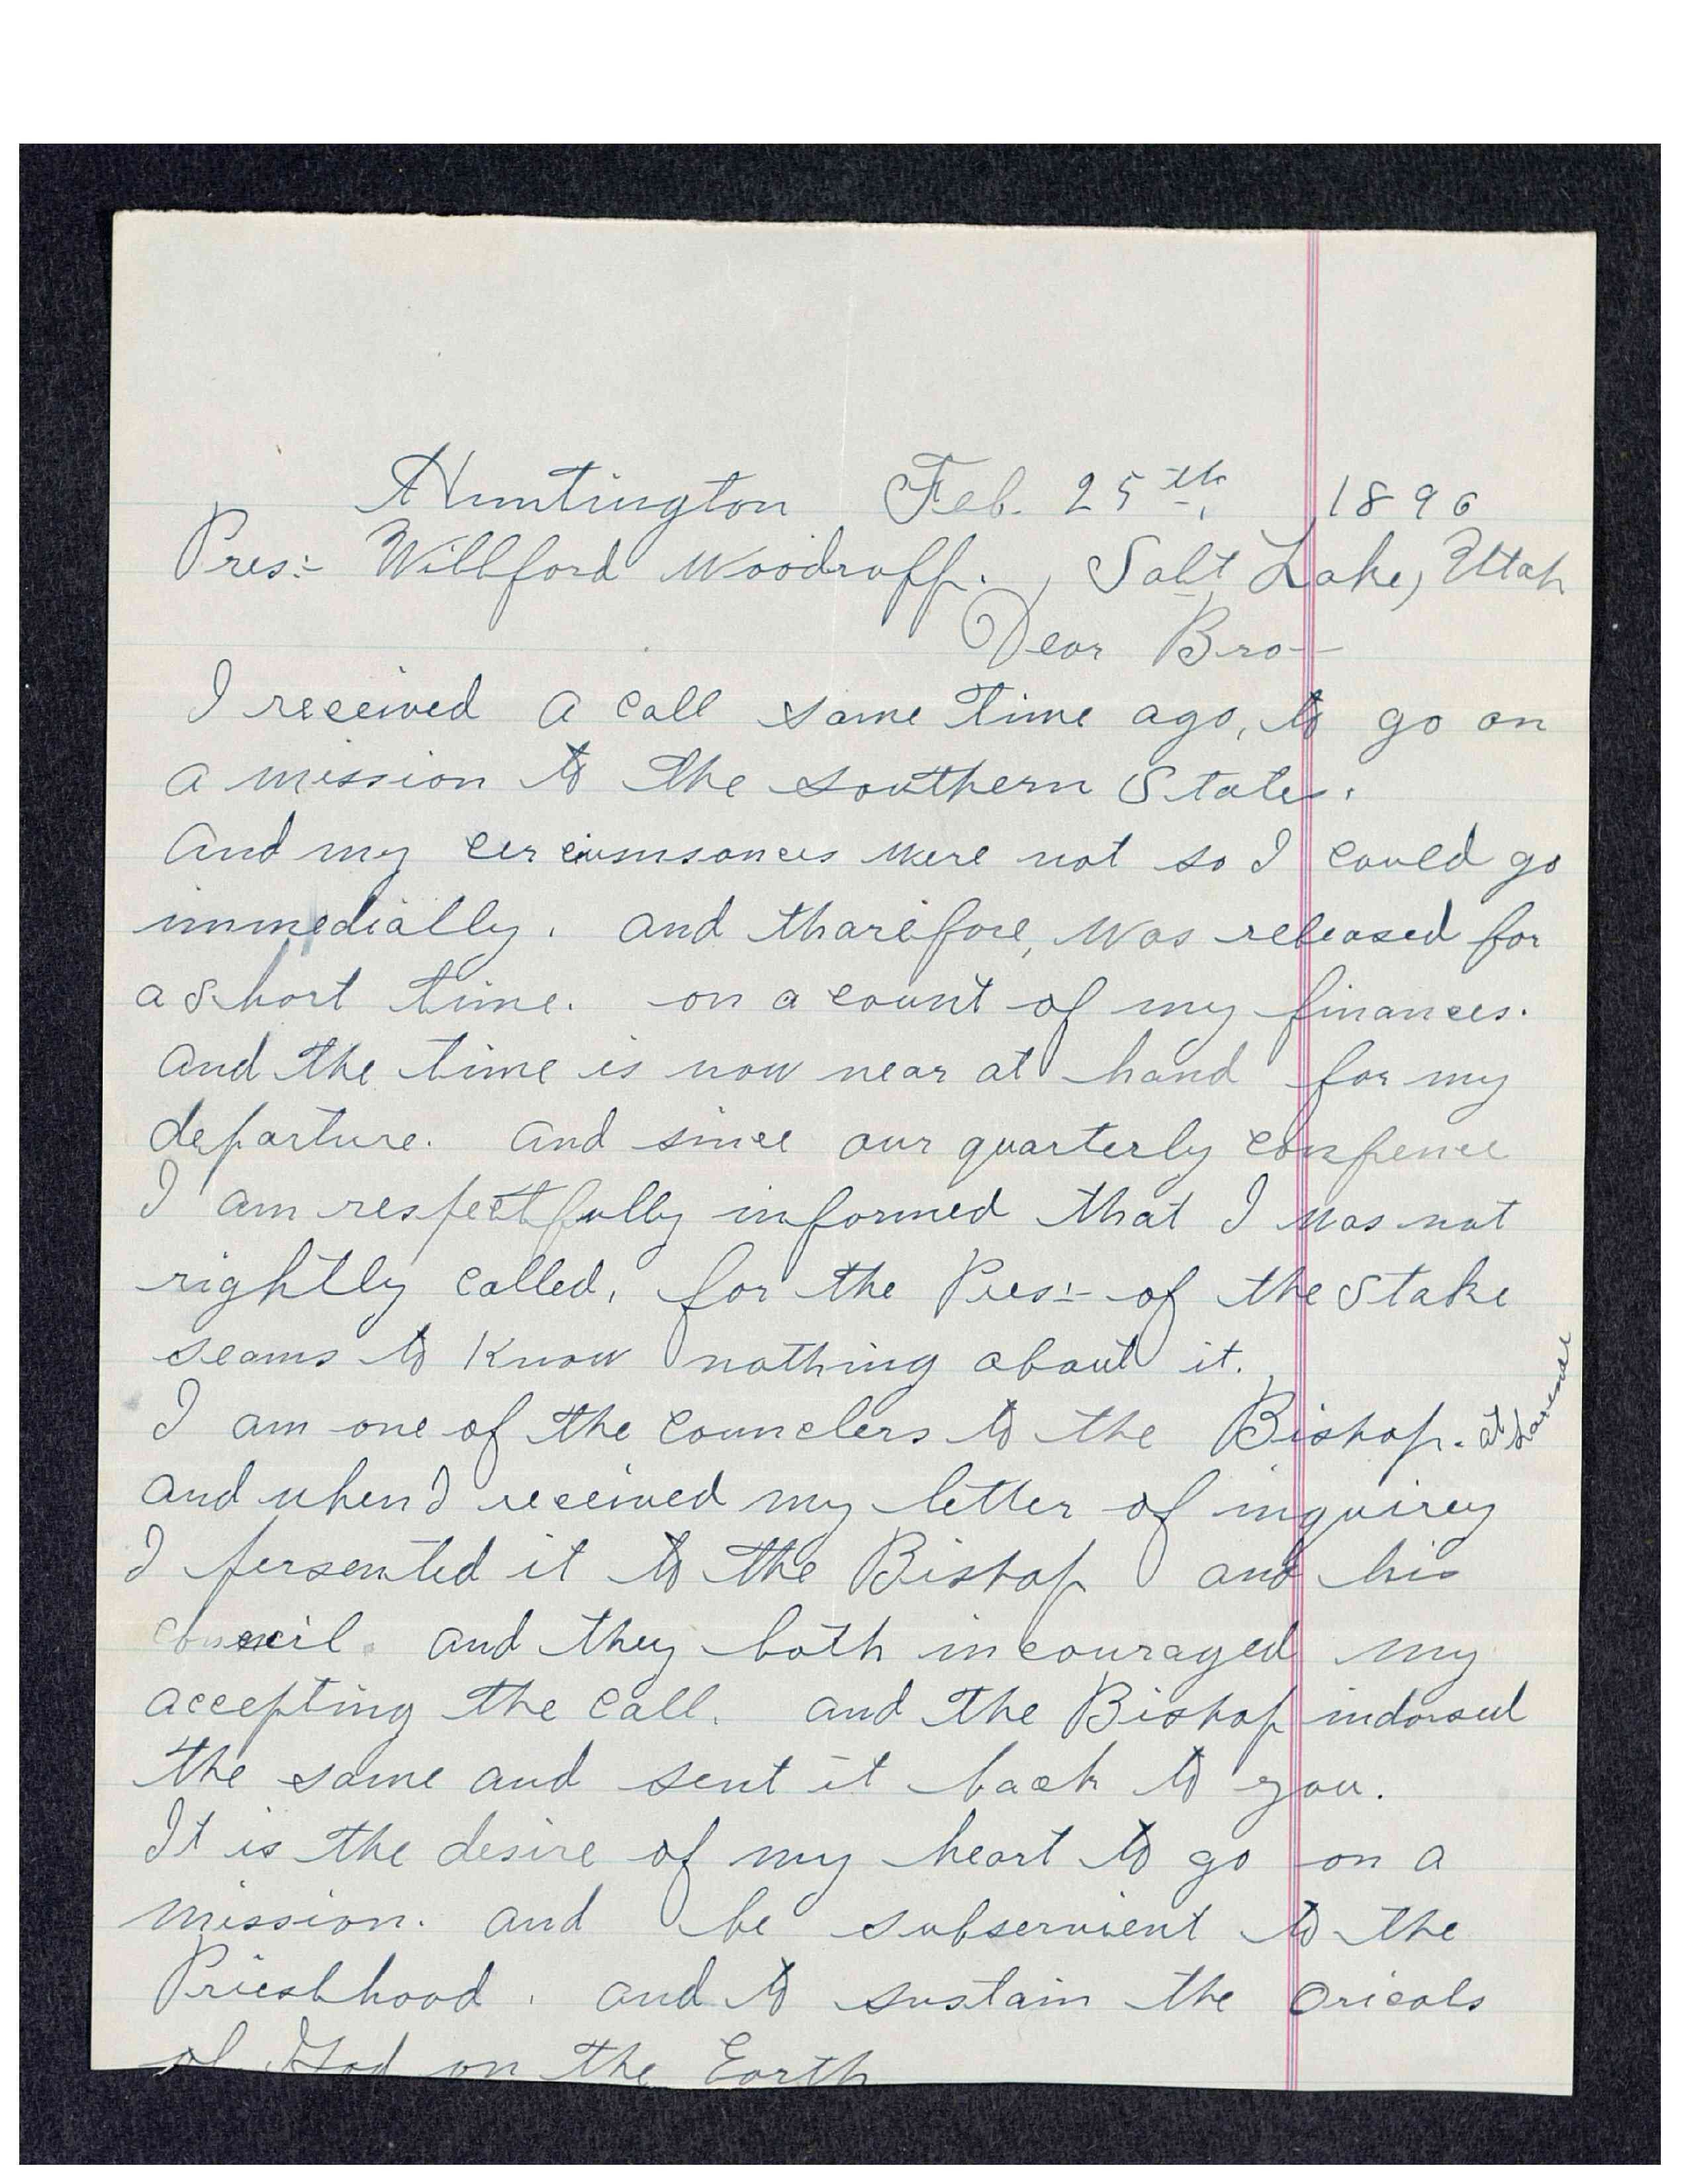 Huntington Feb. 25th, 1896
Pres:- Willford Woodruff. , Salt Lake, Utah
Dear Bro-
I received a call some time ago, to go on
a mission to the southern States.
And my circiumsances were not so I could go
immedially. and tharefore, was released for
a short time. on a count of my finances.
and the time is now near at hand for my
departure. and since our quarterly confrence
I am respectfully informed that I was not
rightly called, for the Pres:- of the Stake
seams to know nothing about it.
I am one of the councelers to the Bishop. at
and when I received my letter of inquirey
I persented it to the Bishop and his
council. and they both incouraged my
accepting the call. and the Bishop indorsed
the same and sent it back to you.
It is the desire of my heart to go on a
mission. and be subservient to the
Priesthood. and to sustain the Oricals
of God on the Earth